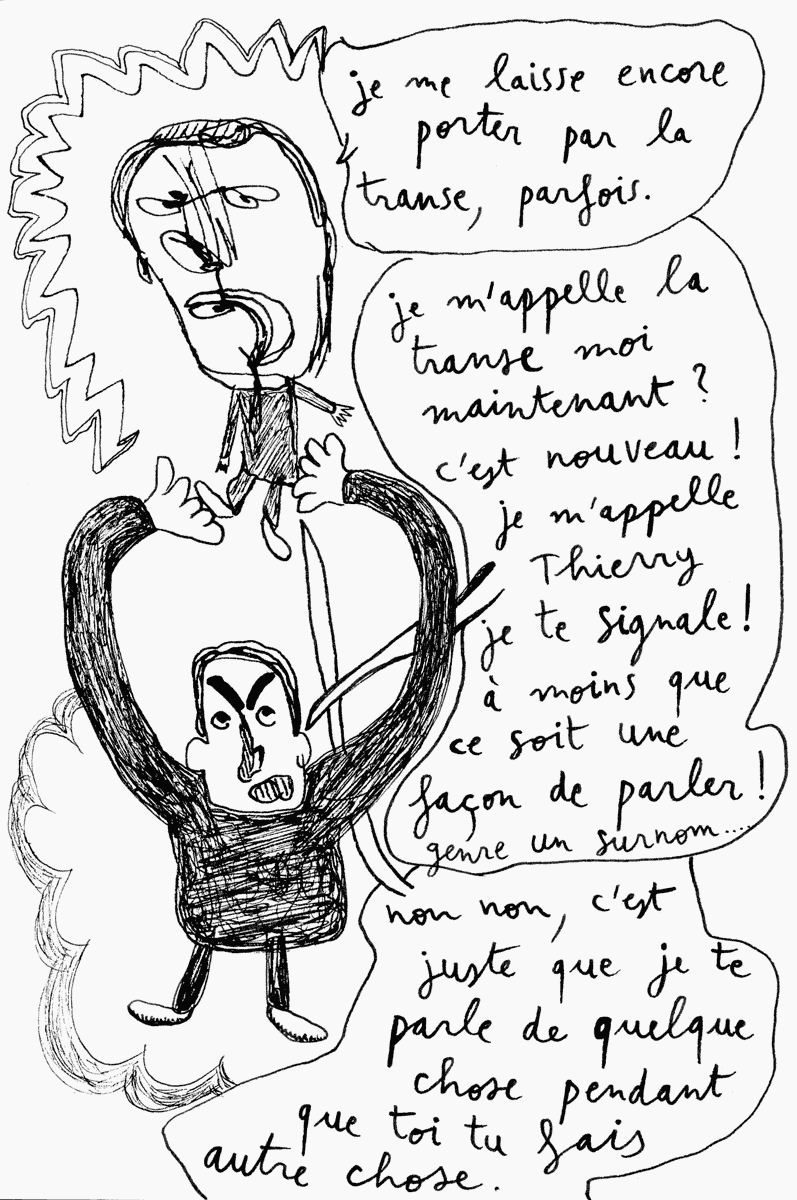 je me laisse encore
porter par la
transe, parfois.
je m'appelle la
transe moi
maintenant ?
c'est nouveau !
je m'appelle
Thierry
je te signale !
à moins que
ce soit une
façon de parler !
genre un surnom....
non non, c'est
juste que je te
parle de quelque
chose pendant
que toi tu fais
autre chose.